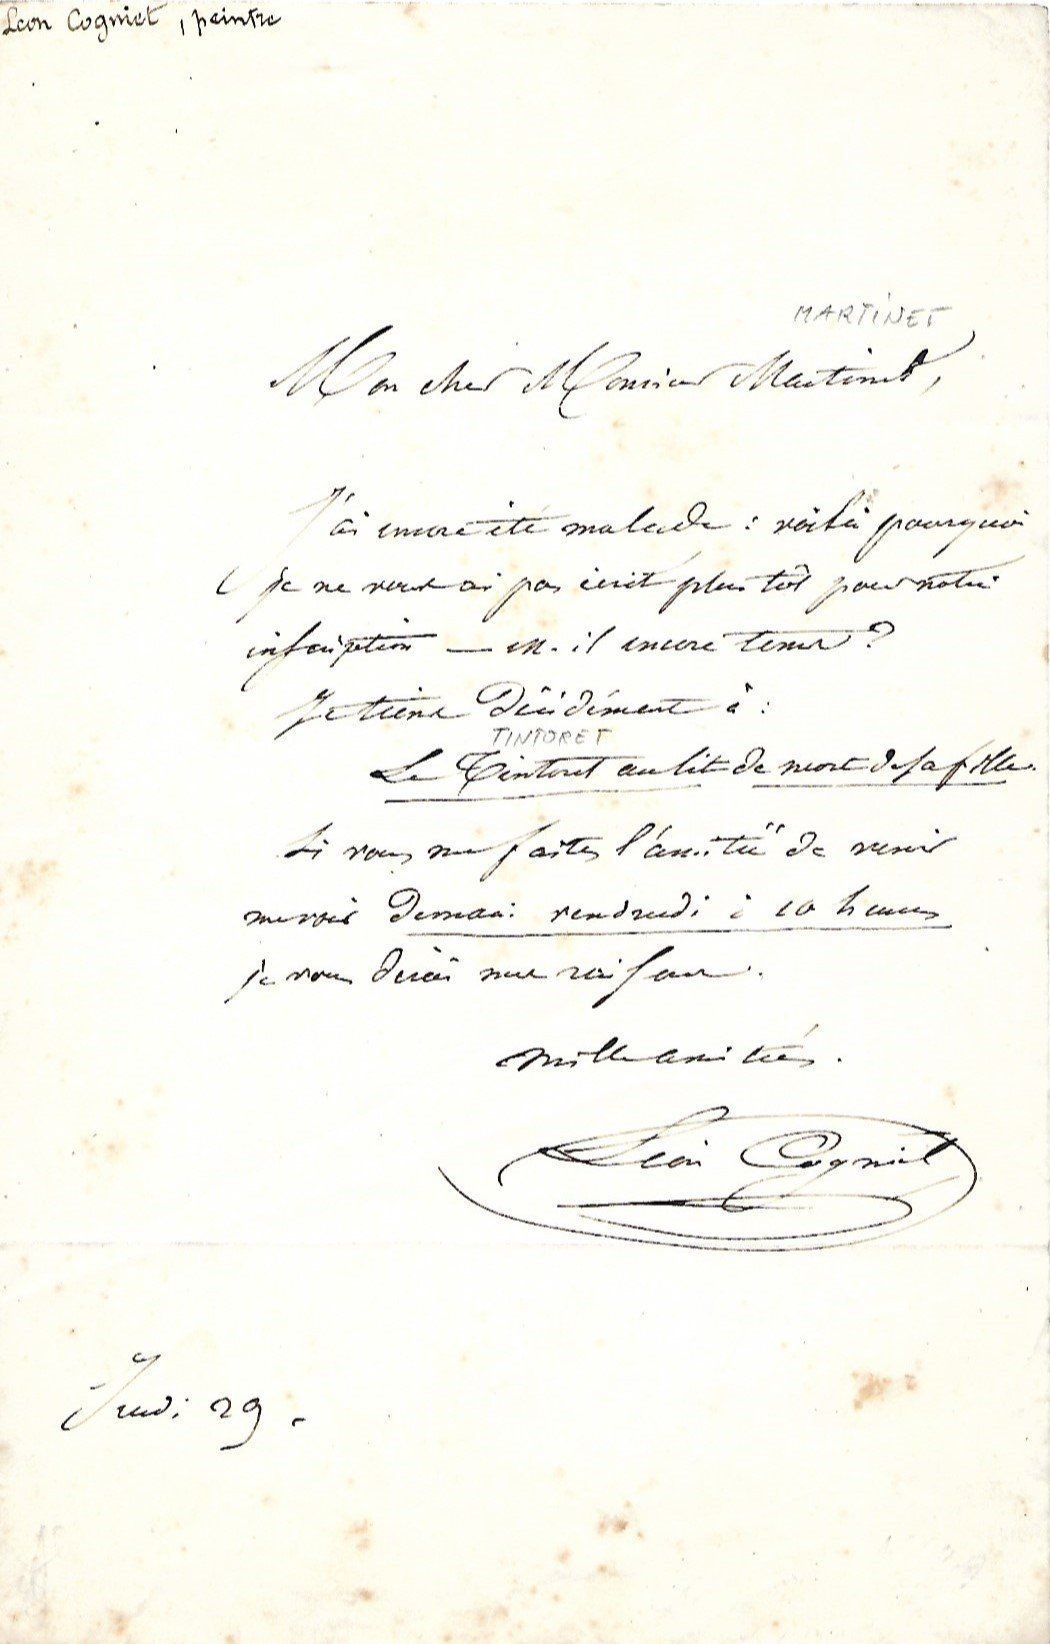 Léon Cogniet, peintre
MARTINET
Mon cher Monsieur Martinet,
J'ai encore été malade : voilà pourquoi
je ne vous ai pas écrit plus tôt pour notre
inscription — est-il encore tems ?
Je tiens décidément à :
TINTORET
Le Tintoret au lit de mort de sa fille.
Si vous me faites l'amitié de venir
me voir demain vendredi à 10 heures
je vous dirai mes raisons.
mille amitiés.
Léon Cogniet
Jeudi 29.